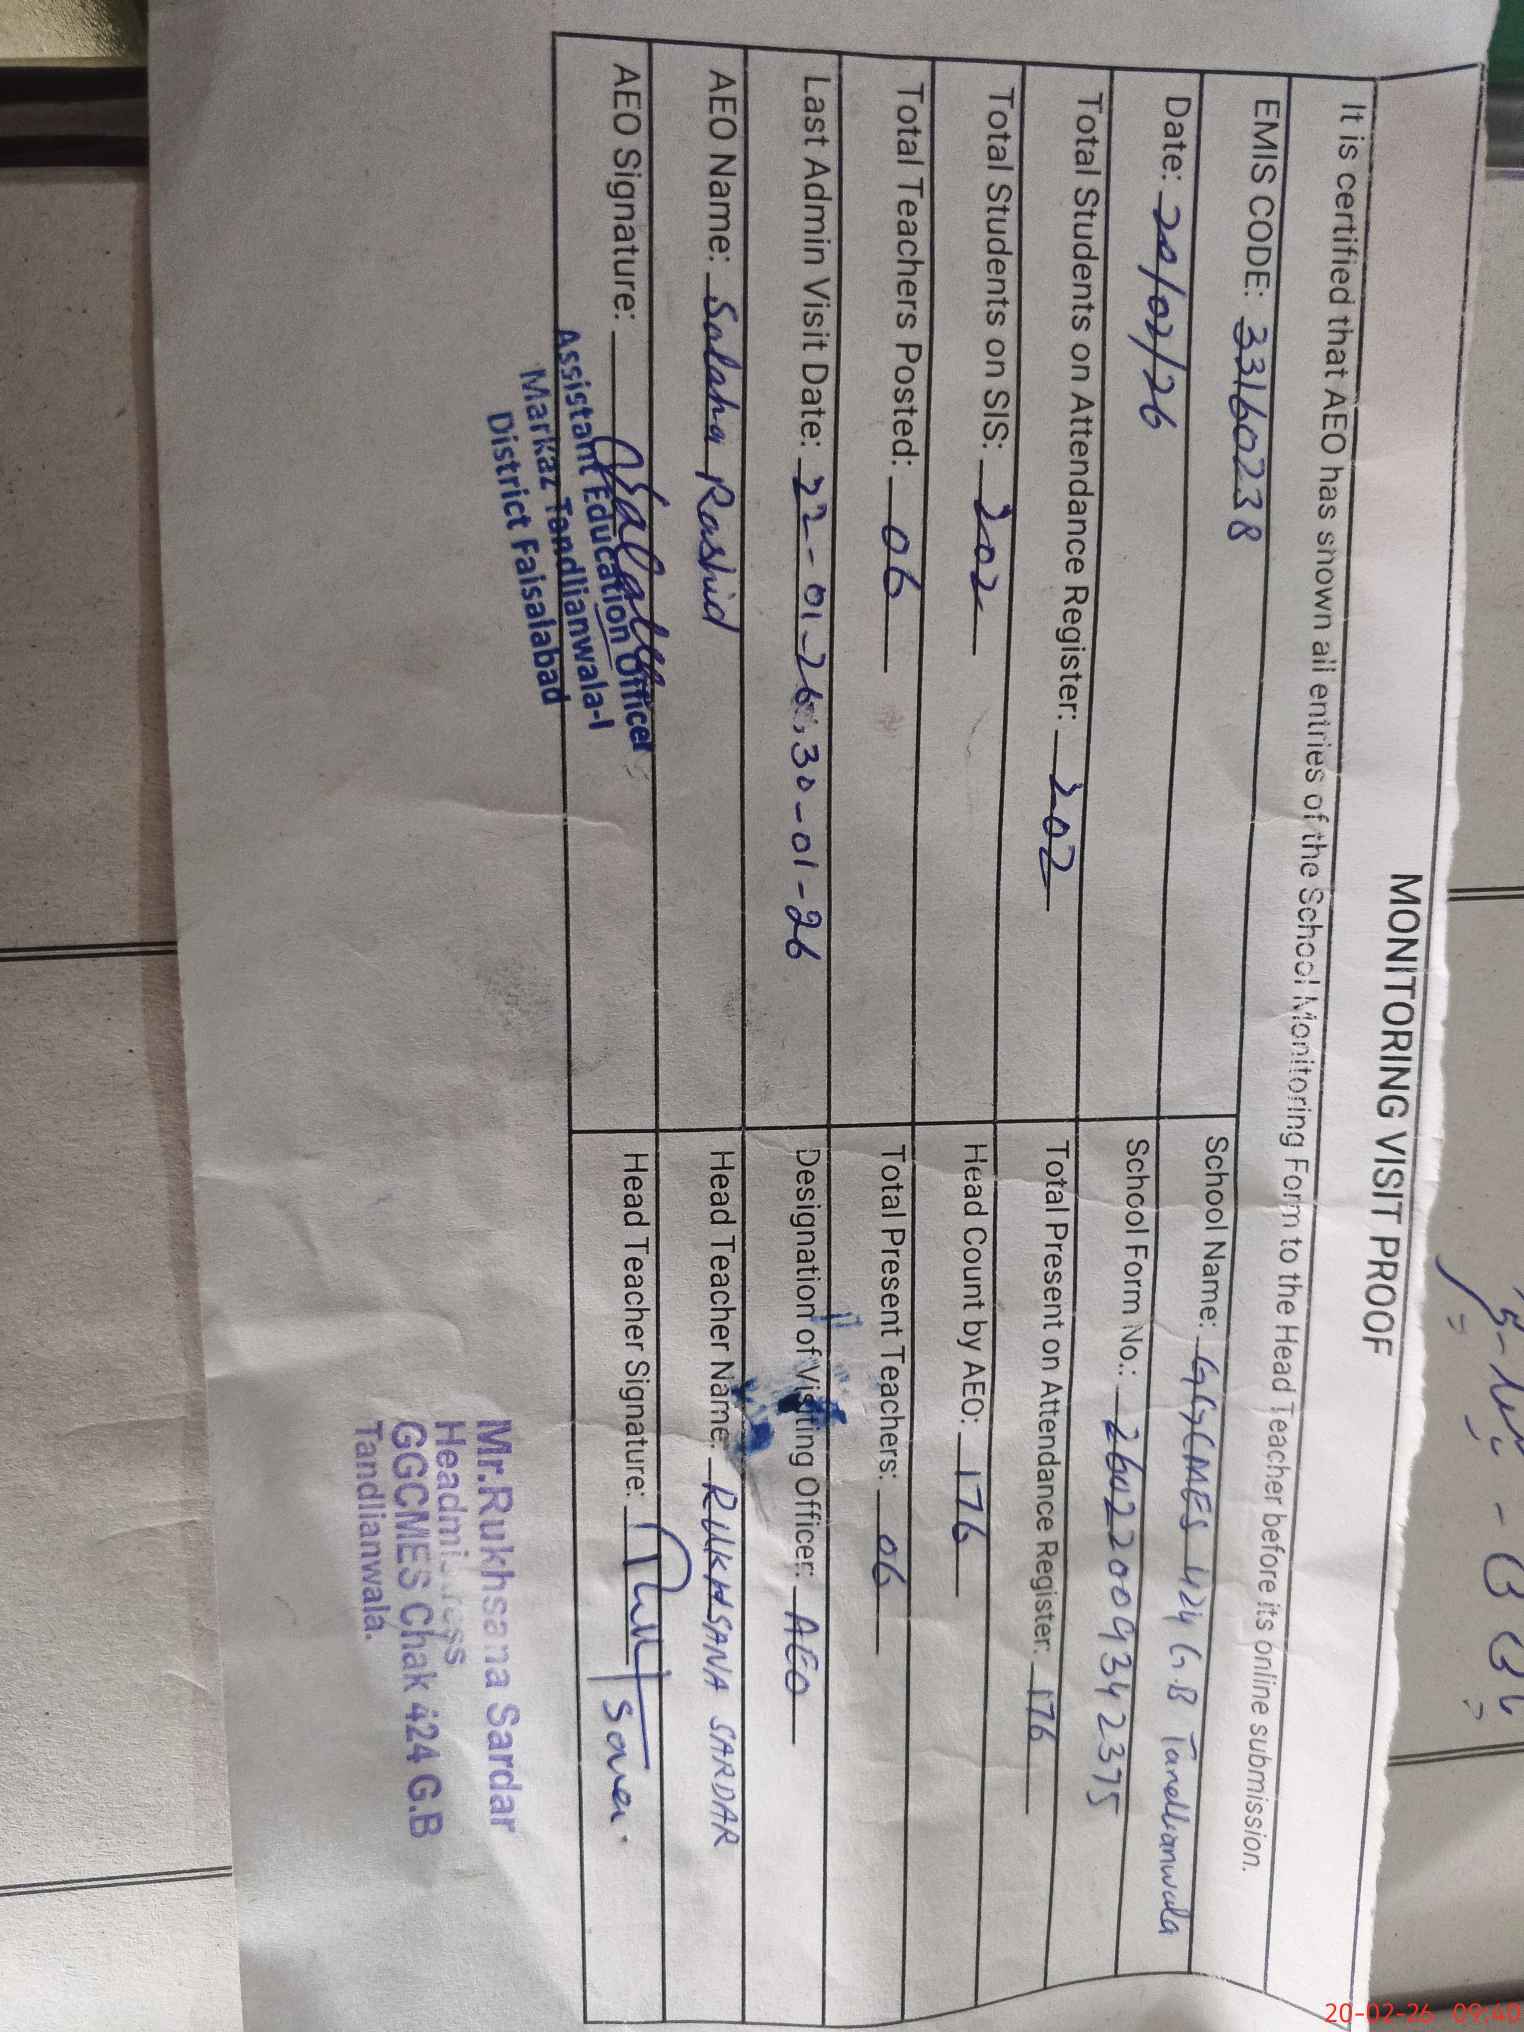 MONITORING VISIT PROOF
It is certified that AEO has shown all entries of the School Monitoring Form to the Head Teacher before its online submission.
EMIS CODE: 33160238
School Name: GGCMES 424 G.B Tandlianwala
Date: 20/02/26
School Form No.: 26022009342375
Total Students on Attendance Register: 202
Total Present on Attendance Register: 176
Total Students on SIS: 202
Head Count by AEO: 176
Total Teachers Posted: 06
Total Present Teachers: 06
Last Admin Visit Date: 22-01-26, 30-01-26
Designation of Visiting Officer: AEO
AEO Name: Salaha Rashid
Head Teacher Name: RUKHSANA SARDAR
AEO Signature:
Head Teacher Signature:
Assistant Education Officer
Markaz Tandlianwala-I
District Faisalabad
Mr.Rukhsana Sardar
Headmistress
GGCMES Chak 424 G.B
Tandlianwala.
20-02-26 09:40